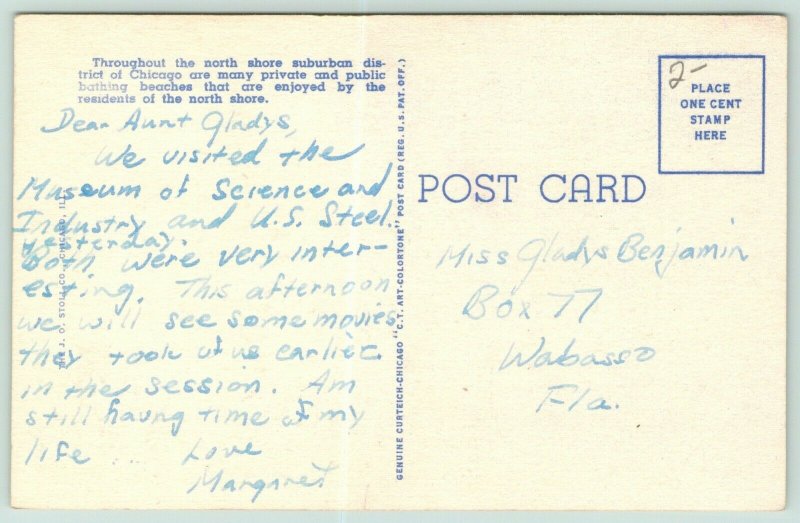 Throughout the north shore suburban dis-
trict of Chicago are many private and public
bathing beaches that are enjoyed by the
residents of the north shore.
Dear Aunt Gladys,
We visited the
Museum of Science and
Industry and U.S. Steel.
yesterday.
Both were very inter-
esting. This afternoon
we will see some movies
they took of us earlier
in the session. Am
still having time of my
life...
Love
Margaret
THE J. O. STOLL CO., CHICAGO, ILL.
GENUINE CURTEICH-CHICAGO "C.T. ART-COLORTONE" POST CARD (REG. U.S. PAT. OFF.)
POST CARD
2-
PLACE
ONE CENT
STAMP
HERE
Miss Gladys Benjamin
Box 77
Wabasso
Fla.